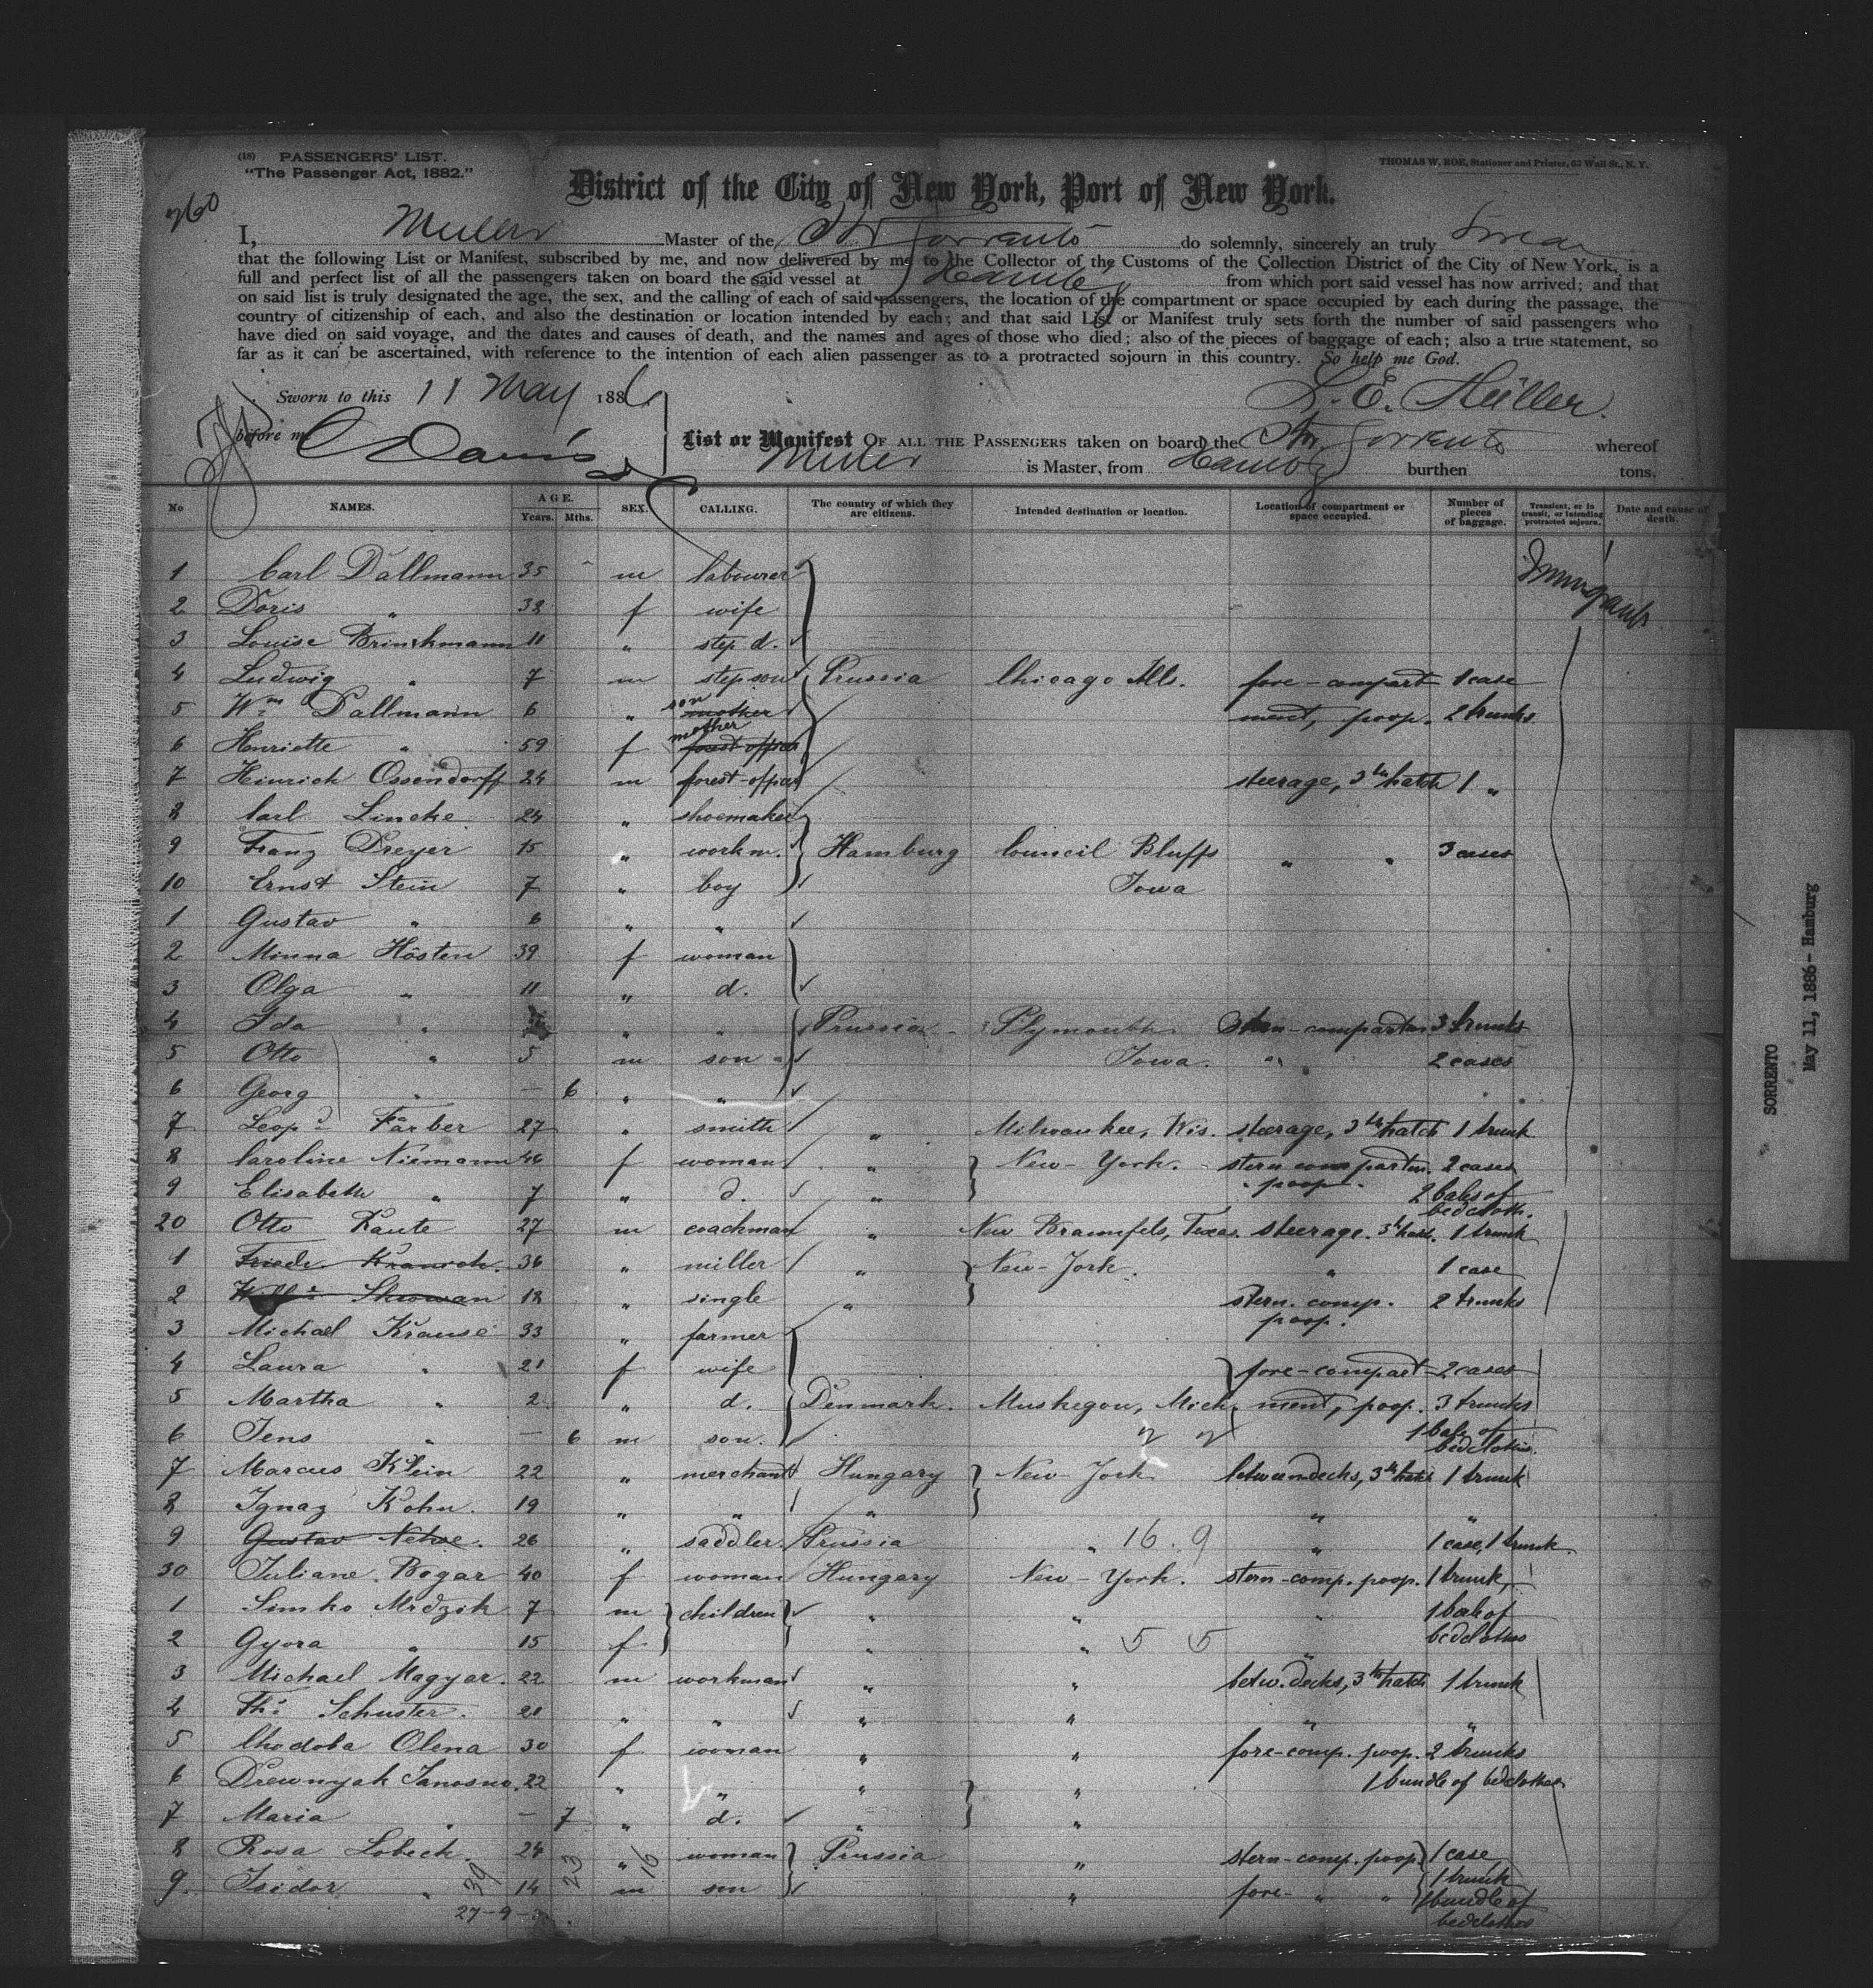 (18) PASSENGERS' LIST.
"The Passenger Act, 1882."
THOMAS W. ROE, Stationer and Printer, 63 Wall St., N. Y.
760
District of the City of New York, Port of New York.
I, Muller Master of the Str Sorrento do solemnly, sincerely an truly Swear
that the following List or Manifest, subscribed by me, and now delivered by me to the Collector of the Customs of the Collection District of the City of New York, is a
full and perfect list of all the passengers taken on board the said vessel at Hamburg from which port said vessel has now arrived; and that
on said list is truly designated the age, the sex, and the calling of each of said passengers, the location of the compartment or space occupied by each during the passage, the
country of citizenship of each, and also the destination or location intended by each; and that said List or Manifest truly sets forth the number of said passengers who
have died on said voyage, and the dates and causes of death, and the names and ages of those who died; also of the pieces of baggage of each; also a true statement, so
far as it can be ascertained, with reference to the intention of each alien passenger as to a protracted sojourn in this country. So help me God.
Sworn to this 11 May 1886
L. E. Müller.
before me Davis
List or Manifest OF ALL THE PASSENGERS taken on board the Str Sorrento whereof
Muller is Master, from Hamburg burthen tons.
No NAMES. AGE. Years. Mths. SEX. CALLING. The country of which they are citizens. Intended destination or location. Location of compartment or space occupied. Number of pieces of baggage. Transient, or in transit, or intending protracted sojourn. Date and cause of death.
Immigrants
1 Carl Dallmann 35 m labourer
2 Doris " 38 f wife
3 Louise Brinkmann 11 " step d.
4 Ludwig " 7 m step son Prussia Chicago Ills. fore-compart 1 case
5 Wm Dallmann 6 " mother son ment, poop. 2 trunks
6 Henriette " 59 f forest-officer mother
7 Heinrich Ossendorff 24 m forest-officer steerage, 3th hatch 1 "
8 Carl Lincke 24 " shoemaker
9 Franz Dreyer 15 " workm. Hamburg Council Bluffs " " 3 cases
10 Ernst Stein 7 " boy Iowa
1 Gustav " 6 " "
2 Minna Hösten 39 f woman
3 Olga " 11 " d.
4 Ida " " " Prussia Plymouth Stern-compartm 3 trunks
5 Otto " 5 m son Iowa. " 2 cases
6 Georg " — 6 " "
7 Leopd Färber 27 " smith " Milwaukee, Wis. steerage, 3th hatch 1 trunk
8 Caroline Niemann 46 f woman " New-York. stern compartm. 2 cases
poop.
9 Elisabeth " 7 " d. " 2 bales of
bedcloth.
20 Otto Raute 27 m coachman " New Braunfels, Texas. steerage. 3th hatch. 1 trunk
1 Friedr. Kranich. 36 " miller " New-York. " 1 case
2 18 " single " stern. comp. 2 trunks
poop.
3 Michael Krause 33 " farmer
4 Laura " 21 f wife fore-compart- 2 cases
5 Martha " 2 " d. Denmark. Muskegon, Mich. ment, poop. 3 trunks
6 Jens " — 6 m son. 1 bale of
bedclothes.
7 Marcus Klein 22 " merchant Hungary New-York betweendecks, 3th hatch 1 trunk
8 Ignaz Kohn. 19 " " " " "
9 Gustav 26 " saddler. Prussia " 16. 9 " 1 case, 1 trunk.
30 Juliane Bogar 40 f woman Hungary New-York. stern-comp. poop. 1 trunk,
1 Simko Mrdzik 7 m children " " " 1 bale of
2 Gyora " 15 f " " 5 5 " bedclothes
3 Michael Magyar. 22 m workman " " betw. decks, 3th hatch 1 trunk
4 Schuster. 21 " " " " " "
5 Chodoba Olena 30 f woman " " fore-comp. poop. 2 trunks
6 Drewnyak Janosne. 22 " " " " 1 bundle of bedclothes
7 Maria " — 7 " d. " "
8 Rosa Lobeck. 24 " woman Prussia " stern-comp. poop. 1 case
1 trunk
9. Isidor " 14 m son " fore- " " 1 bundle of
bedclothes
39 23 16
27-9-3
SORRENTO
May 11, 1886 - Hamburg